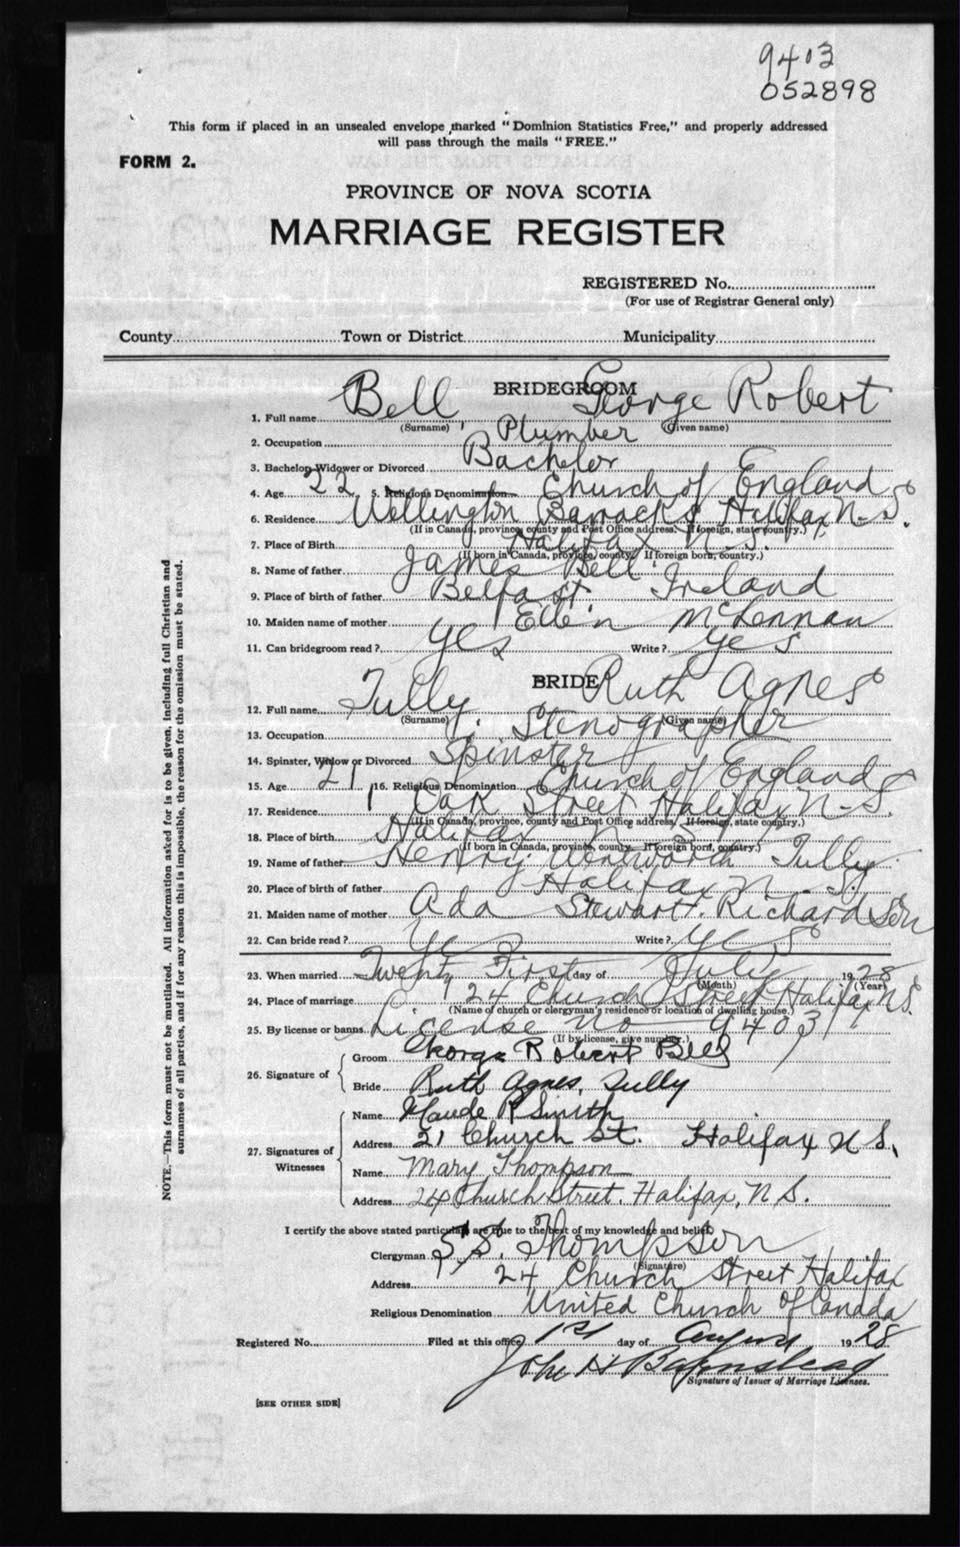 9403
052898
This form if placed in an unsealed envelope marked "Dominion Statistics Free," and properly addressed
will pass through the mails "FREE."
FORM 2.
PROVINCE OF NOVA SCOTIA
MARRIAGE REGISTER
REGISTERED No.
(For use of Registrar General only)
County Town or District Municipality
BRIDEGROOM
1. Full name Bell George Robert
(Surname) (Given name)
2. Occupation Plumber
3. Bachelor, Widower or Divorced Bachelor
4. Age 22 5. Religious Denomination Church of England
6. Residence Wellington Barracks Halifax N-S.
(If in Canada, province, county and Post Office address. If foreign, state country.)
7. Place of Birth Halifax N.S.
(If born in Canada, province, county. If foreign born, country.)
8. Name of father James Bell
9. Place of birth of father Belfast Ireland
10. Maiden name of mother Ellen McLennan
11. Can bridegroom read? Yes Write? Yes
BRIDE
12. Full name Tully Ruth Agnes
(Surname) (Given name)
13. Occupation Stenographer
14. Spinster, Widow or Divorced Spinster
15. Age 21 16. Religious Denomination Church of England
17. Residence 1 Oak Street Halifax N-S.
(If in Canada, province, county and Post Office address, If foreign, state country.)
18. Place of birth Halifax N-S
(If born in Canada, province, county. If foreign born, country.)
19. Name of father Henry Wentworth Tully
20. Place of birth of father Halifax N-S.
21. Maiden name of mother Ada Stewart Richardson
22. Can bride read? Yes Write? Yes
23. When married Twenty First day of July 1928
(Month) (Year)
24. Place of marriage 24 Church Street Halifax N.S.
(Name of church or clergyman's residence or location of dwelling house.)
25. By license or banns License no 9403
(If by license, give number.)
26. Signature of Groom George Robert Bell
Bride Ruth Agnes Tully
27. Signatures of Witnesses Name Maude R Smith
Address 21 Church St. Halifax N.S.
Name Mary Thompson
Address 24 Church Street, Halifax, N.S.
I certify the above stated particulars are true to the best of my knowledge and belief.
Clergyman Thompson
(Signature)
Address 24 Church Street Halifax
Religious Denomination United Church of Canada
Registered No. Filed at this office 1st day of August 1928
John H Barnstead
Signature of Issuer of Marriage Licenses.
[SEE OTHER SIDE]
NOTE.—This form must not be mutilated. All information asked for is to be given, including full Christian and
surnames of all parties, and if for any reason this is impossible, the reason for the omission must be stated.